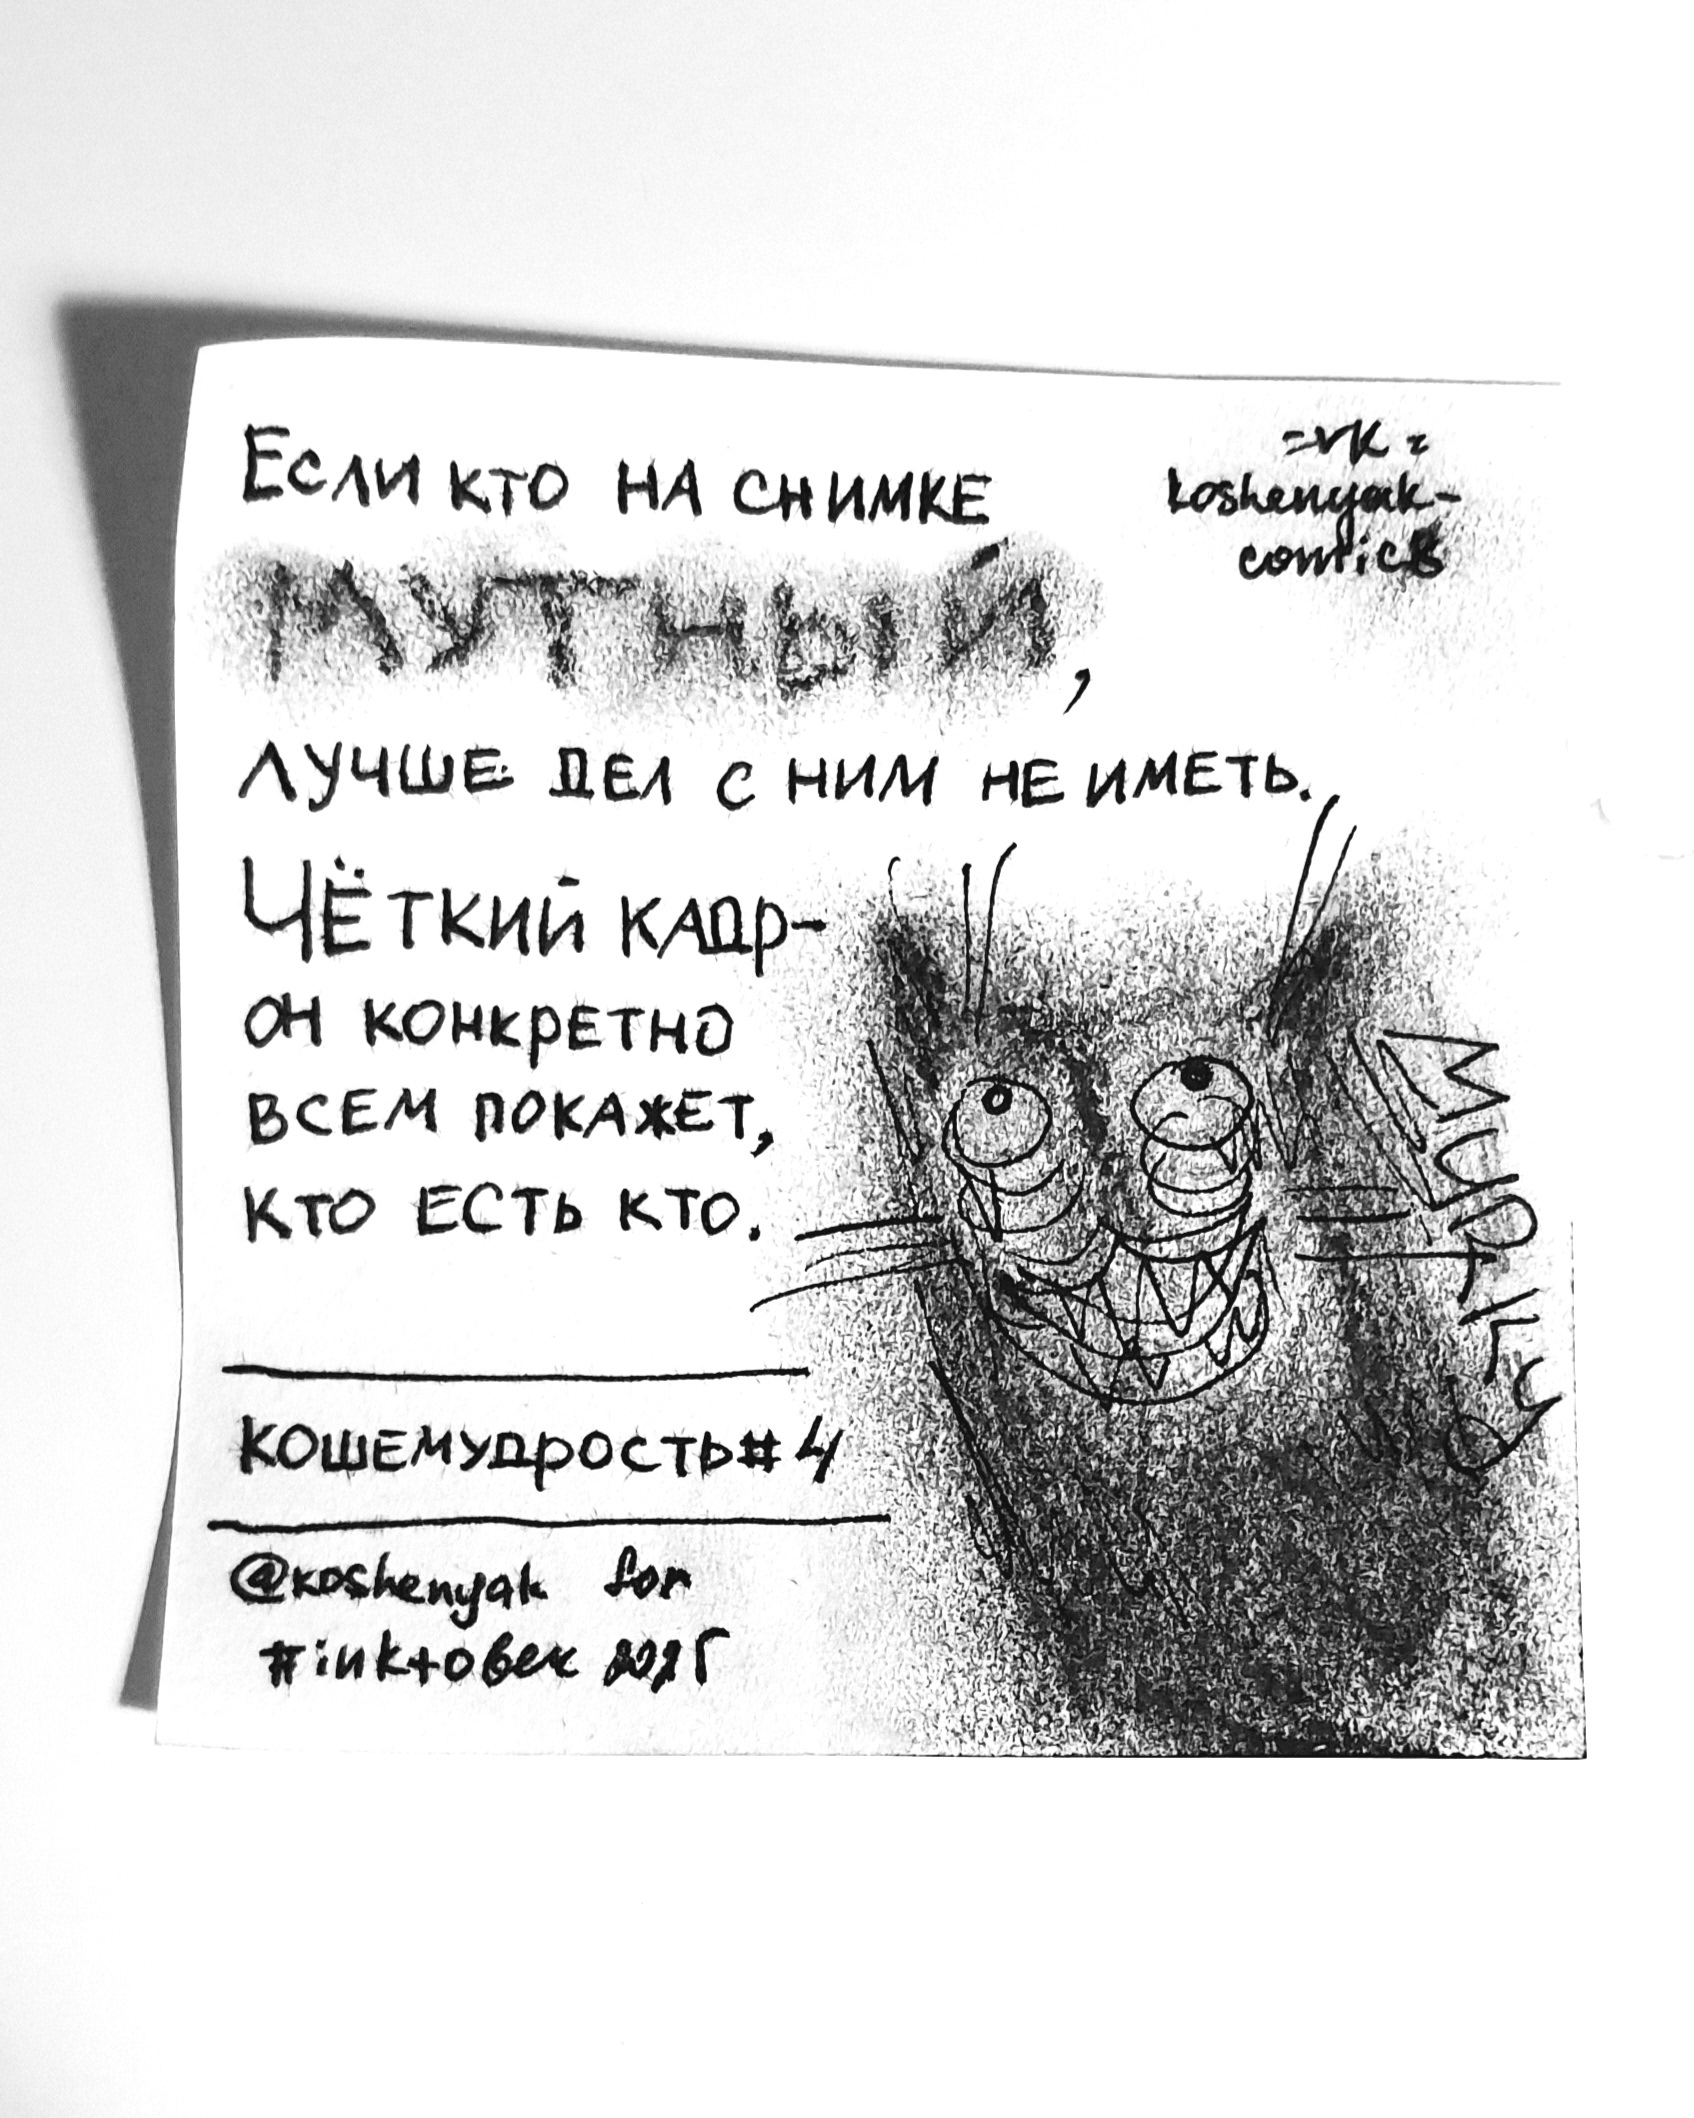 Если кто на снимке
=vk=
koshenyak-
comics
МУТНЫЙ,
лучше дел с ним не иметь.
Чёткий кадр-
он конкретно
всем покажет,
кто есть кто.
МУРКУ
кошемудрость#4
@koshenyak for
#inktober 2025